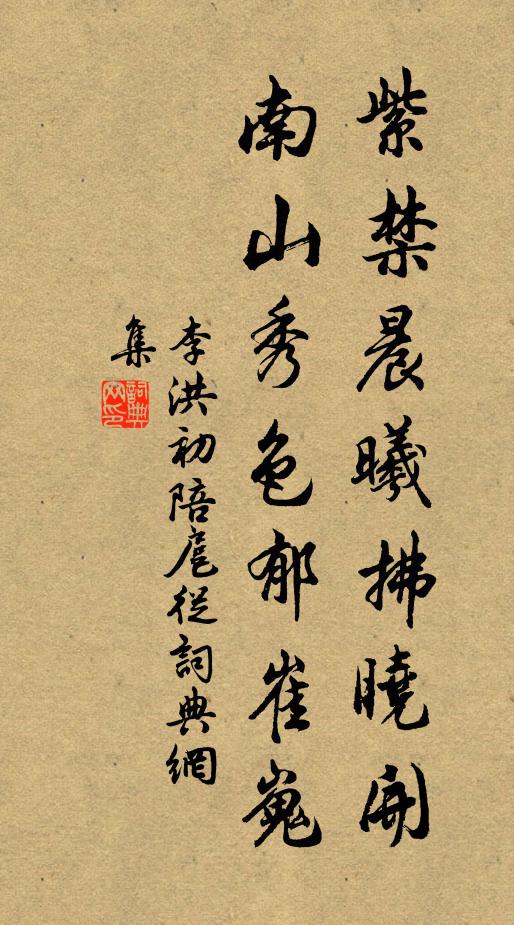 紫禁晨曦拂曉開
南山秀色郁崔嵬
李洪初陪扈從詞典網
集
詞典
网印